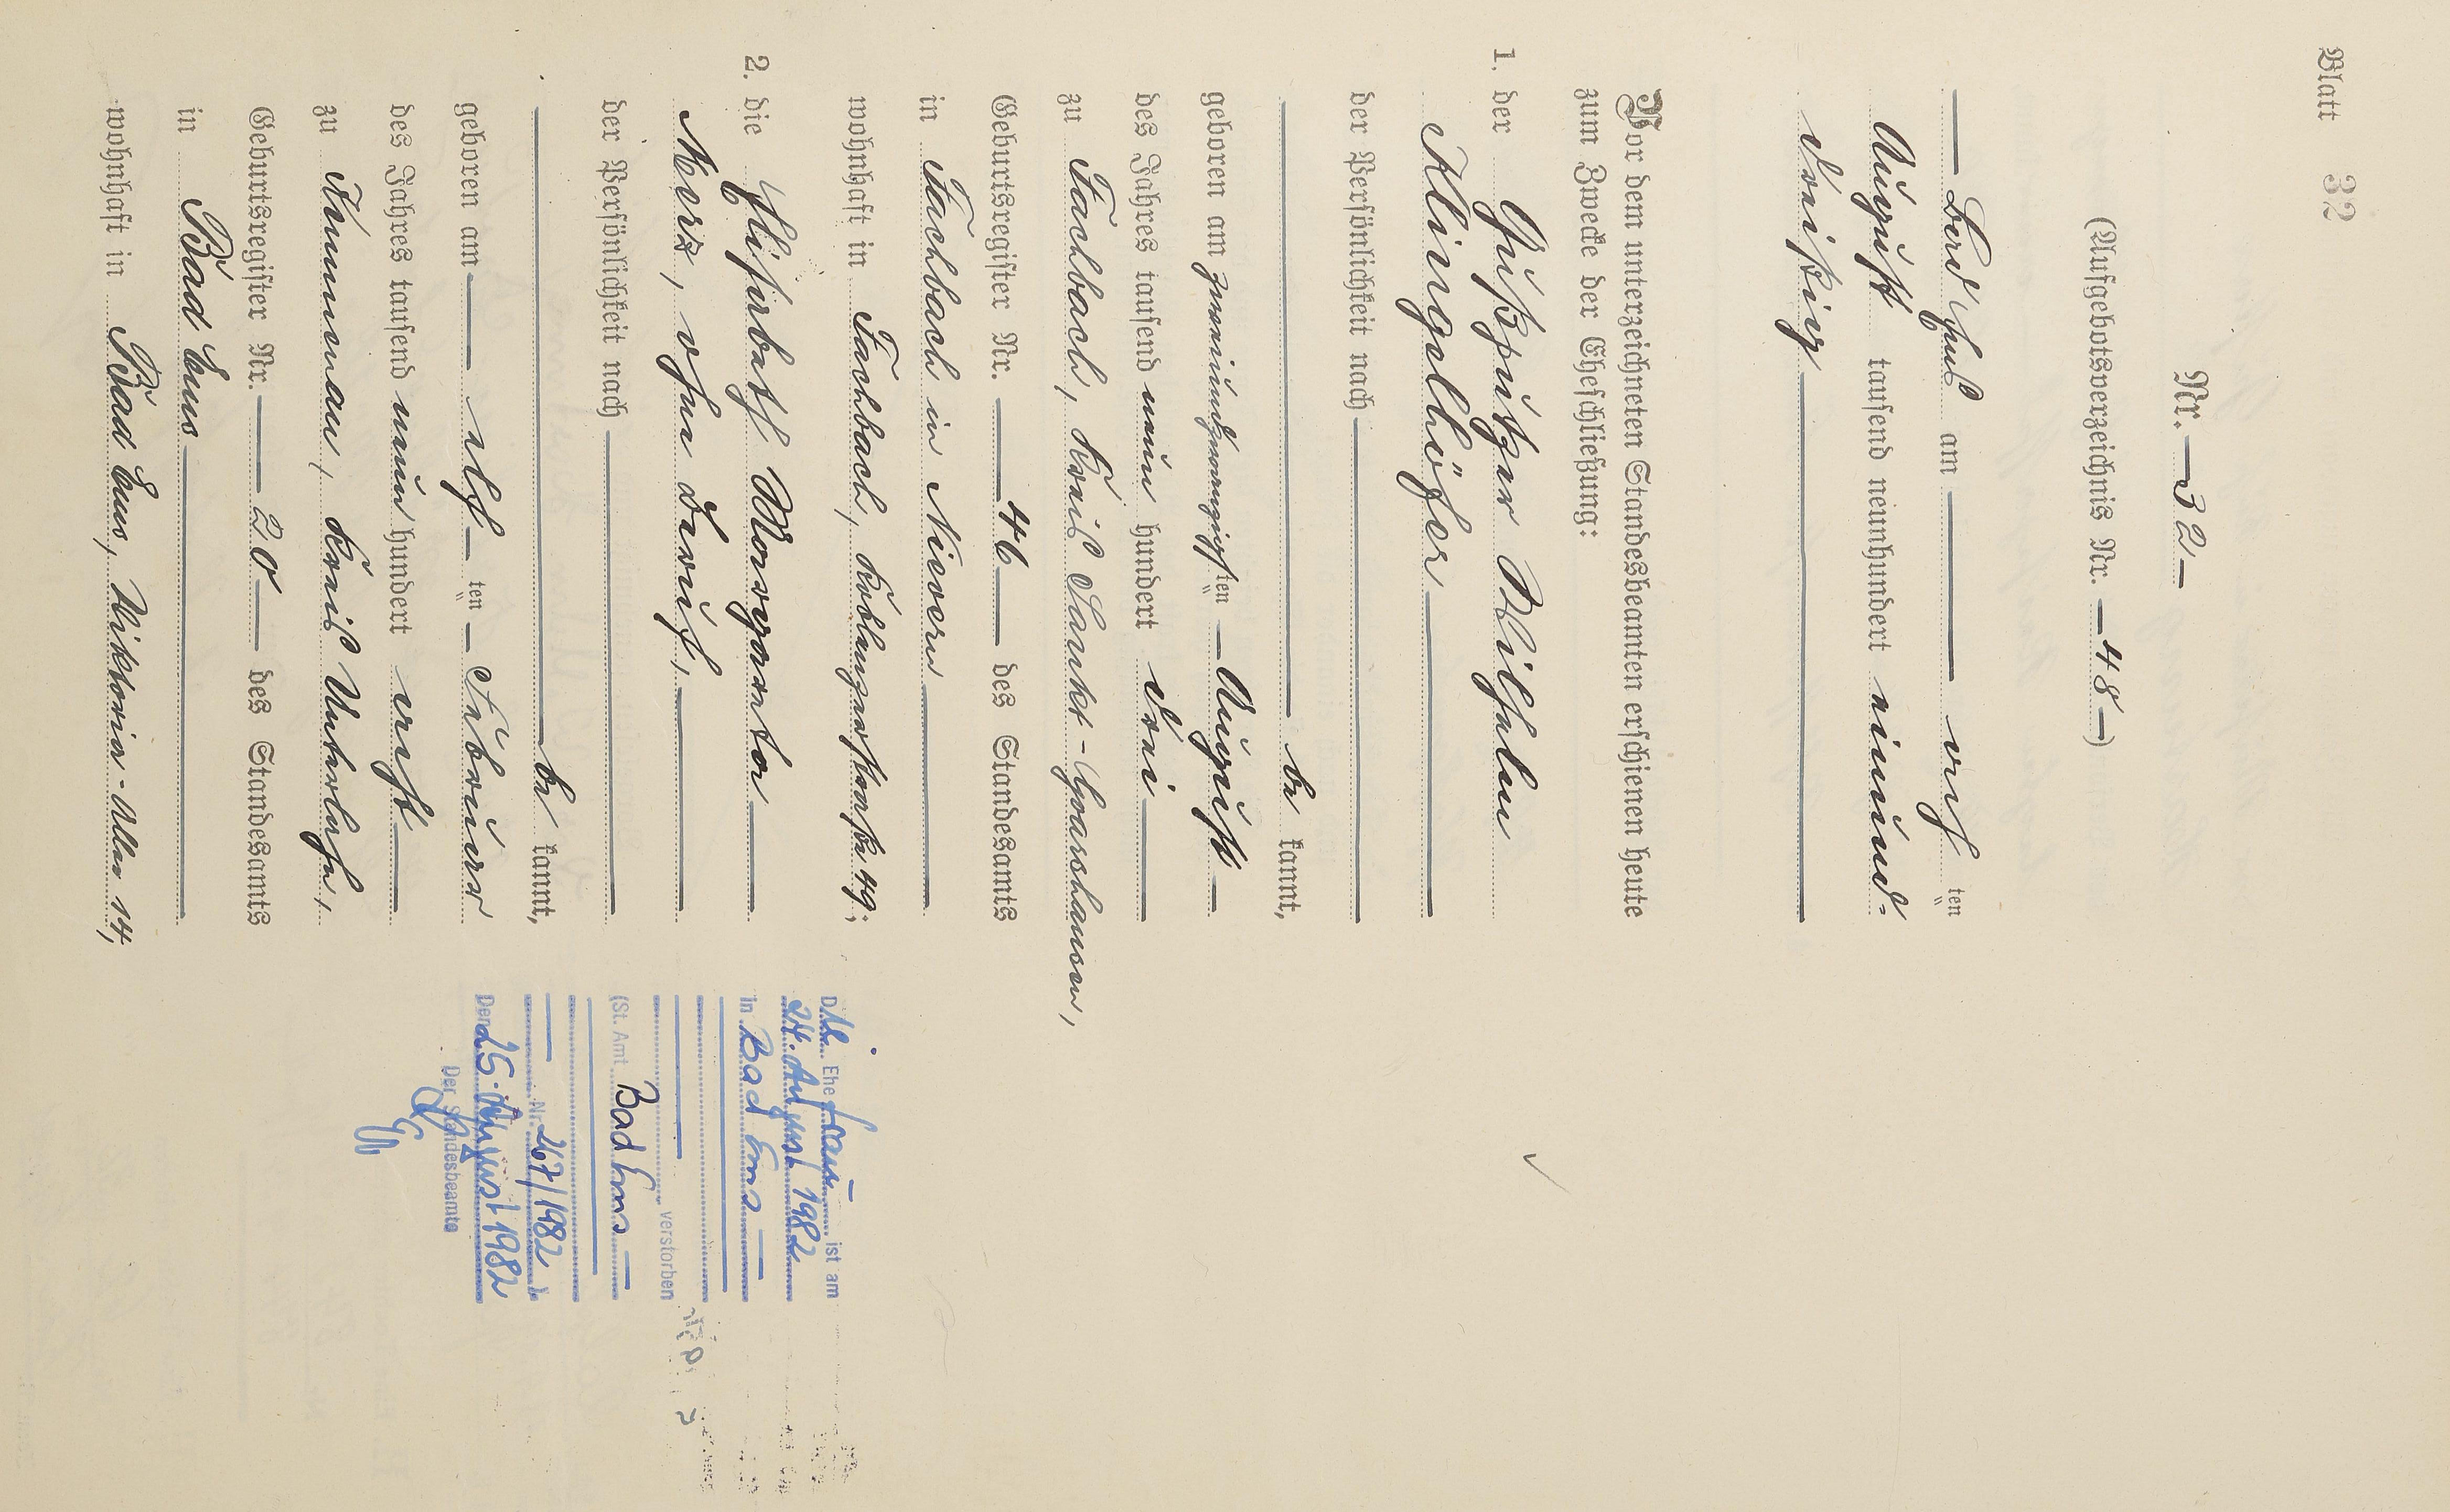 Blatt 32
Nr. 32
(Aufgebotsverzeichnis Nr. 48)
Bad Ems am acht ten
August tausend neunhundert einund-
dreißig
Vor dem unterzeichneten Standesbeamten erschienen heute
zum Zwecke der Eheschließung:
1. der Hilfsheizer Wilhelm
Klingelhöfer
der Persönlichkeit nach
be kannt,
geboren am zweiundzwanzigsten August
des Jahres tausend neun hundert drei
zu Fachbach, Kreis Sankt-Goarshausen,
Geburtsregister Nr. 46 des Standesamts
in Fachbach in Nievern
wohnhaft in Fachbach, Koblenzerstraße 49;
2. die Elisabeth Margareta
Merz, ohne Beruf,
der Persönlichkeit nach
be kannt,
geboren am elf ten Februar
des Jahres tausend neun hundert acht
zu Kemmenau, Kreis Unterlahn,
Geburtsregister Nr. 20 des Standesamts
in Bad Ems
wohnhaft in Bad Ems, Viktoria-Allee 14,
Die Ehefrau ist am
24. August 1982
in Bad Ems
verstorben
(St. Amt Bad Ems
Nr. 267/1982)
Den 25. August 1982
Der Standesbeamte